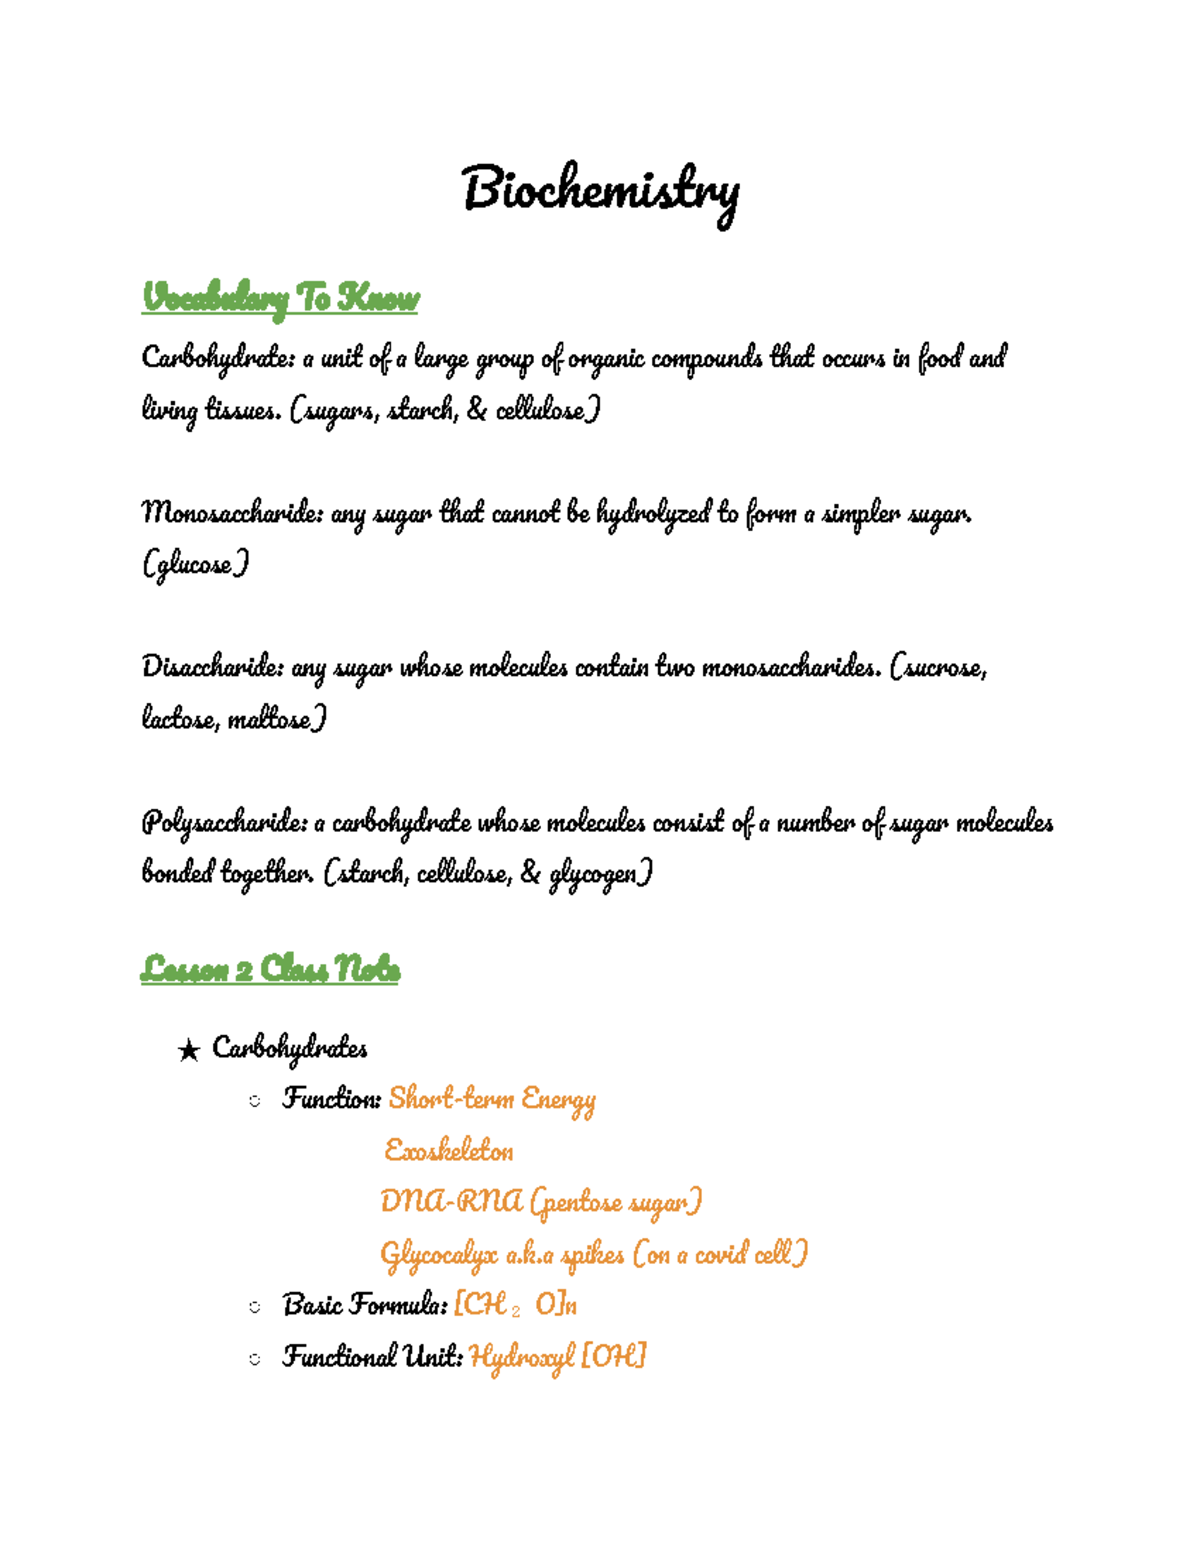 Biochemistry
Vocabulary To Know
Carbohydrate: a unit of a large group of organic compounds that occurs in food and
living tissues. (sugars, starch, & cellulose)
Monosaccharide: any sugar that cannot be hydrolyzed to form a simpler sugar.
(glucose)
Disaccharide: any sugar whose molecules contain two monosaccharides. (sucrose,
lactose, maltose)
Polysaccharide: a carbohydrate whose molecules consist of a number of sugar molecules
bonded together. (starch, cellulose, & glycogen)
Lesson 2 Class Note
★ Carbohydrates
○ Function: Short-term Energy
Exoskeleton
DNA-RNA (pentose sugar)
Glycocalyx a.k.a spikes (on a covid cell)
○ Basic Formula: [CH₂ O]n
○ Functional Unit: Hydroxyl [OH]